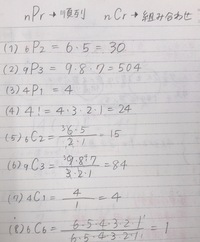 nPr→順列 nCr→組み合わせ
(1) ₆P₂ = 6・5 = 30
(2) ₉P₃ = 9・8・7 = 504
(3) ₄P₁ = 4
(4) 4! = 4・3・2・1 = 24
(5) ₆C₂ = ³6・5 / 2・1 = 15
(6) ₉C₃ = ³9・8⁴・7 / 3・2・1 = 84
(7) ₄C₁ = 4 / 1 = 4
(8) ₆C₆ = 6・5・4・3・2・1 / 6・5・4・3・2・1 = 1